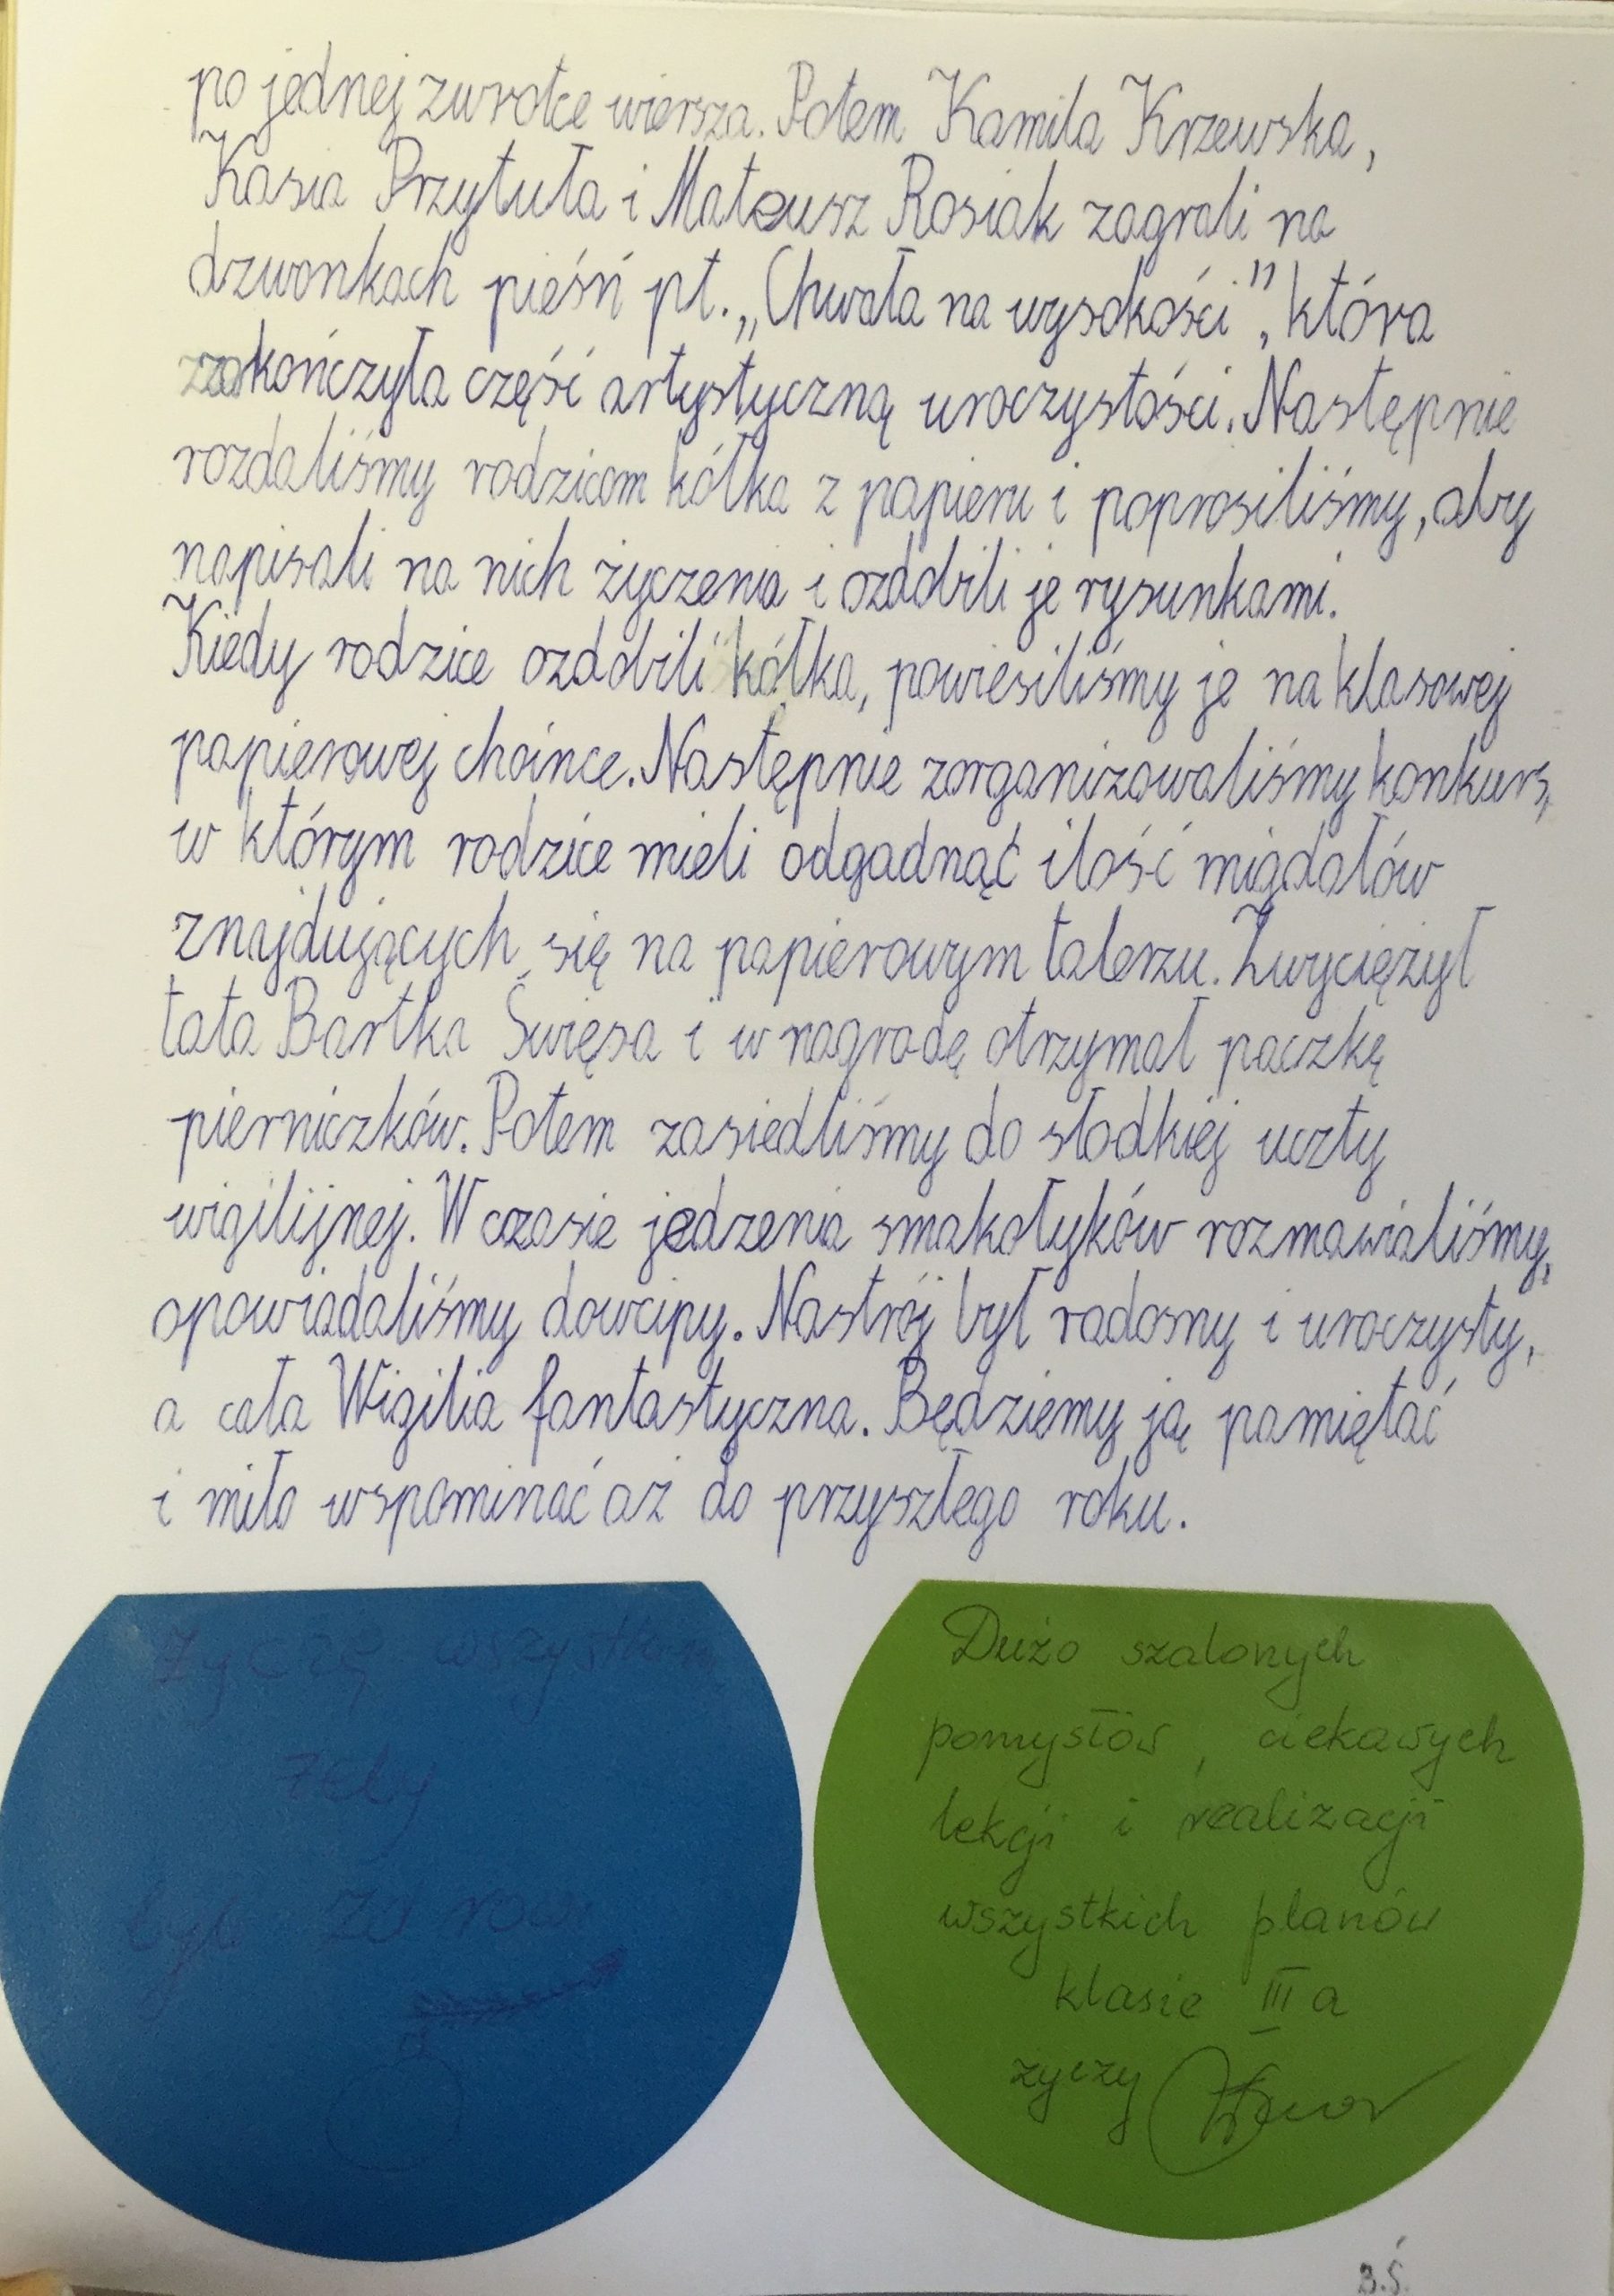 po jednej zwrotce wiersza. Potem Kamila Krzewska,
Kasia Przytuła i Mateusz Rosiak zagrali na
dzwonkach pieśń pt. „Chwała na wysokości”, która
zakończyła część artystyczną uroczystości. Następnie
rozdaliśmy rodzicom kółka z papieru i poprosiliśmy, aby
napisali na nich życzenia i ozdobili je rysunkami.
Kiedy rodzice ozdobili kółka, powiesiliśmy je na klasowej
papierowej choince. Następnie zorganizowaliśmy konkurs,
w którym rodzice mieli odgadnąć ilość migdałów
znajdujących się na papierowym talerzu. Zwyciężył
tata Bartka Święsa i w nagrodę otrzymał paczkę
pierniczków. Potem zasiedliśmy do słodkiej uczty
wigilijnej. W czasie jedzenia smakołyków rozmawialiśmy,
opowiadaliśmy dowcipy. Nastrój był radosny i uroczysty,
a cała Wigilia fantastyczna. Będziemy ją pamiętać
i miło wspominać aż do przyszłego roku.
Życzę wszystkim
żeby
Dużo szalonych
pomysłów, ciekawych
lekcji i realizacji
wszystkich planów
klasie III a
życzy
B.Ś.